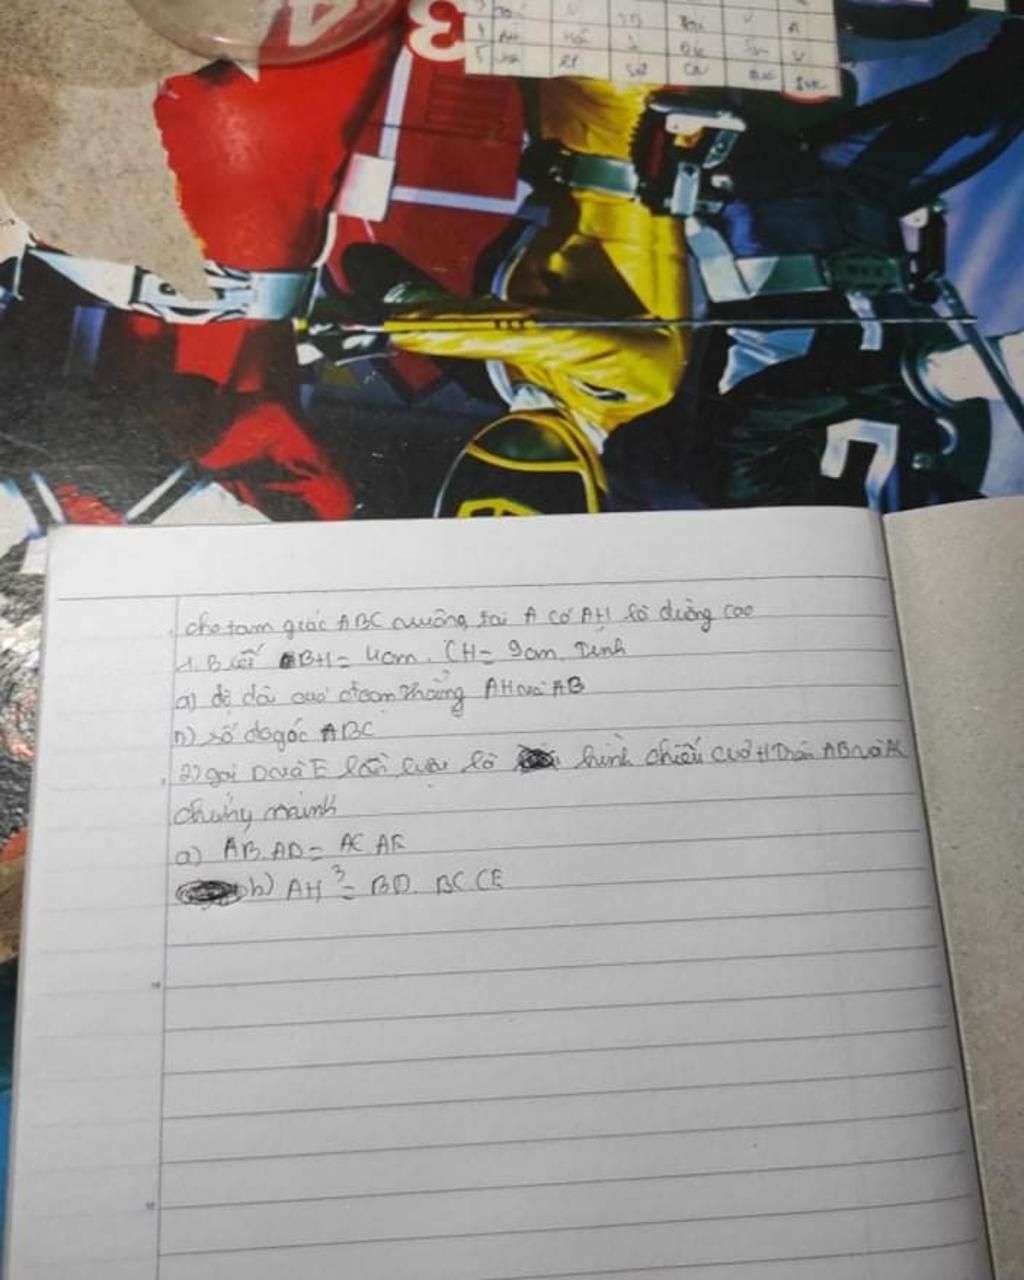 4
3
cho tam giác ABC vuông tại A có AH là đường cao
1. Biết BH = 4cm. CH = 9cm. Tính
a) độ dài của đoạn thẳng AH và AB
b) số đo góc ABC
2) gọi D và E lần lượt là hình chiếu của H trên AB và AC
chứng minh
a) AB.AD = AC.AE
b) AH³ = BD. BC CE